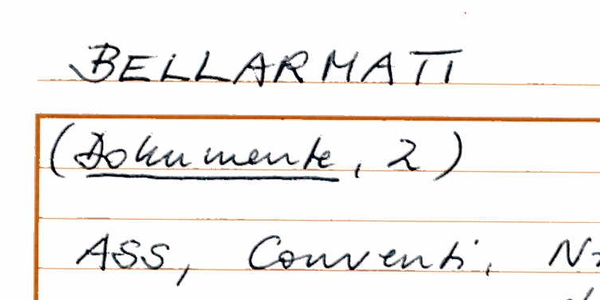 BELLARMATI
(Dokumente, 2)
ASS, Conventi,